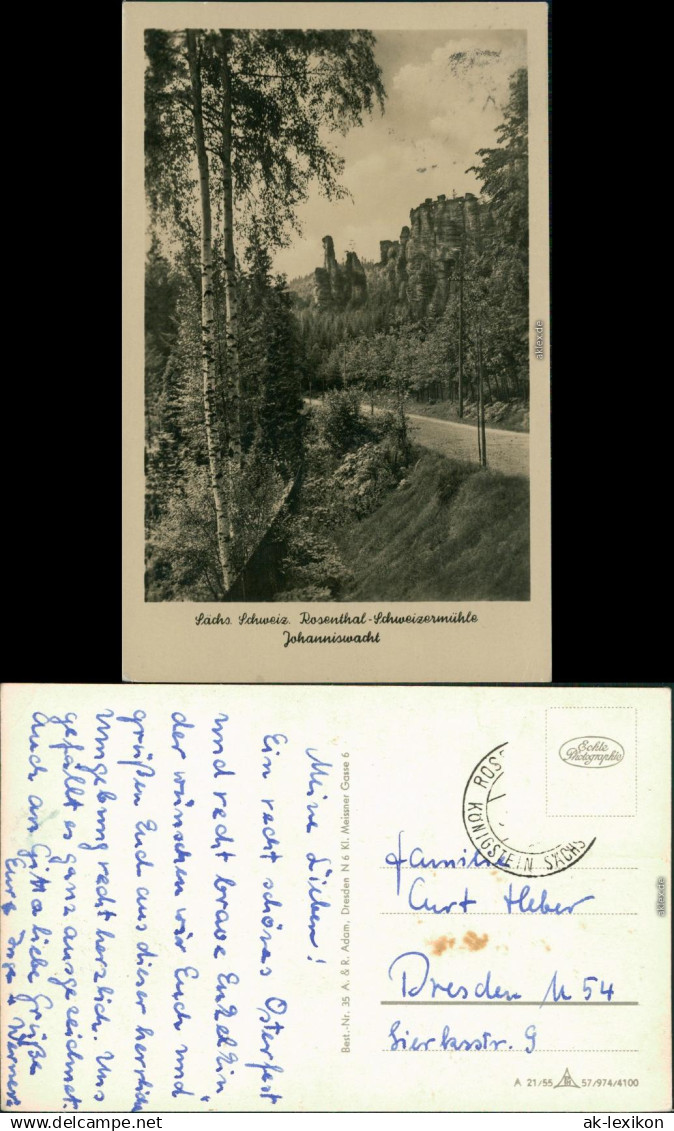 Sächs. Schweiz. Rosenthal-Schweizermühle
Johanniswacht
aklex.de
Meine Lieben!
Ein recht schönes Osterfest
und recht brave Enkelkin„
der wünschen wir Euch und
grüßen Euch aus dieser herrlichen
Umgebung recht herzlich. Uns
gefällt es ganz ausgezeichnet.
Auch an Gitta liebe Grüße
Eure Inge & Werner
Best.-Nr. 35 A. & R. Adam, Dresden N 6 Kl. Meissner Gasse 6
ROS
KÖNIGSTEIN SACHS
Echte
Photographie
Familie
Curt Heber
Dresden N 54
Sierksstr. 9
A 21/55 57/974/4100
aklex.de
www.delcampe.net
ak-lexikon